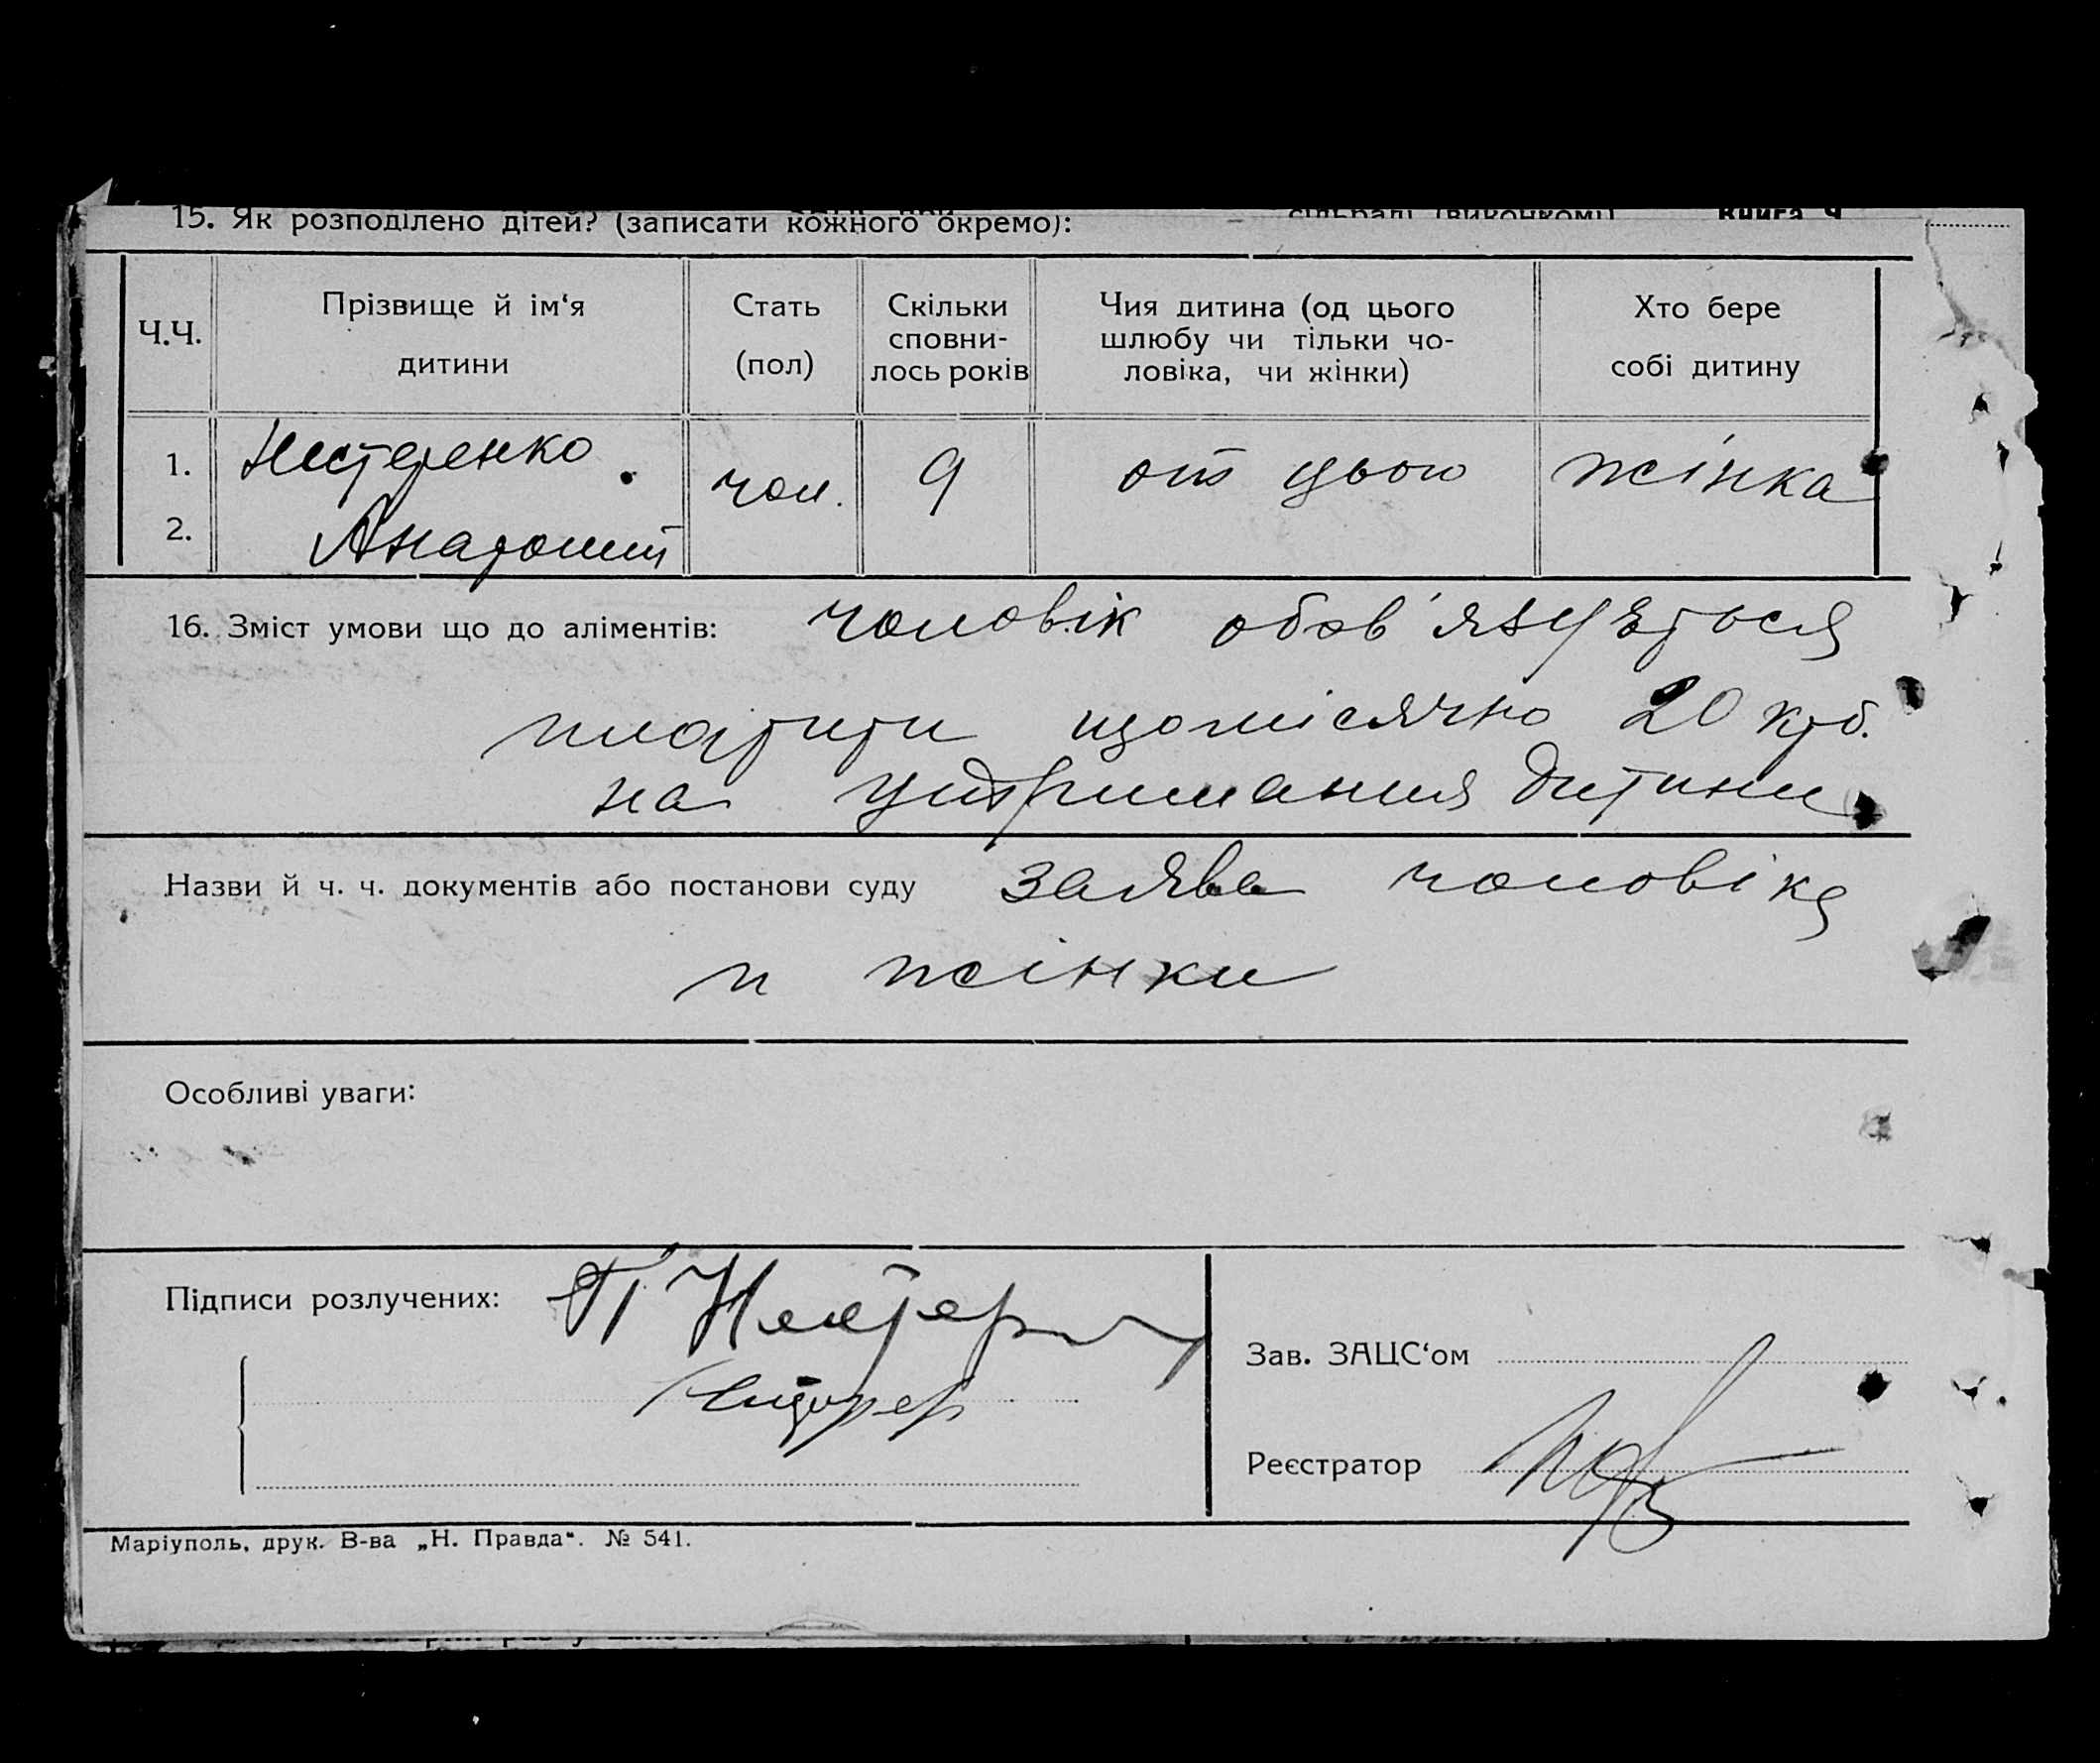 15. Як розподілено дітей? (записати кожного окремо):
Ч.Ч.
Прізвище й ім‘я
дитини
Стать
(пол)
Скільки
сповни-
лось років
Чия дитина (од цього
шлюбу чи тільки чо-
ловіка, чи жінки)
Хто бере
собі дитину
1. Нестеренко чол. 9 от цього жінка
2. Анатолий
16. Зміст умови що до аліментів: чоловік обов'язуеться
платити щомісячно 20 крб.
на удтримання дитини
Назви й ч. ч. документів або постанови суду заява чоловіка
и жінки
Особливі уваги:
Підписи розлучених:
Зав. ЗАЦС‘ом
Реєстратор
Маріуполь, друк. В-ва „Н. Правда“. № 541.